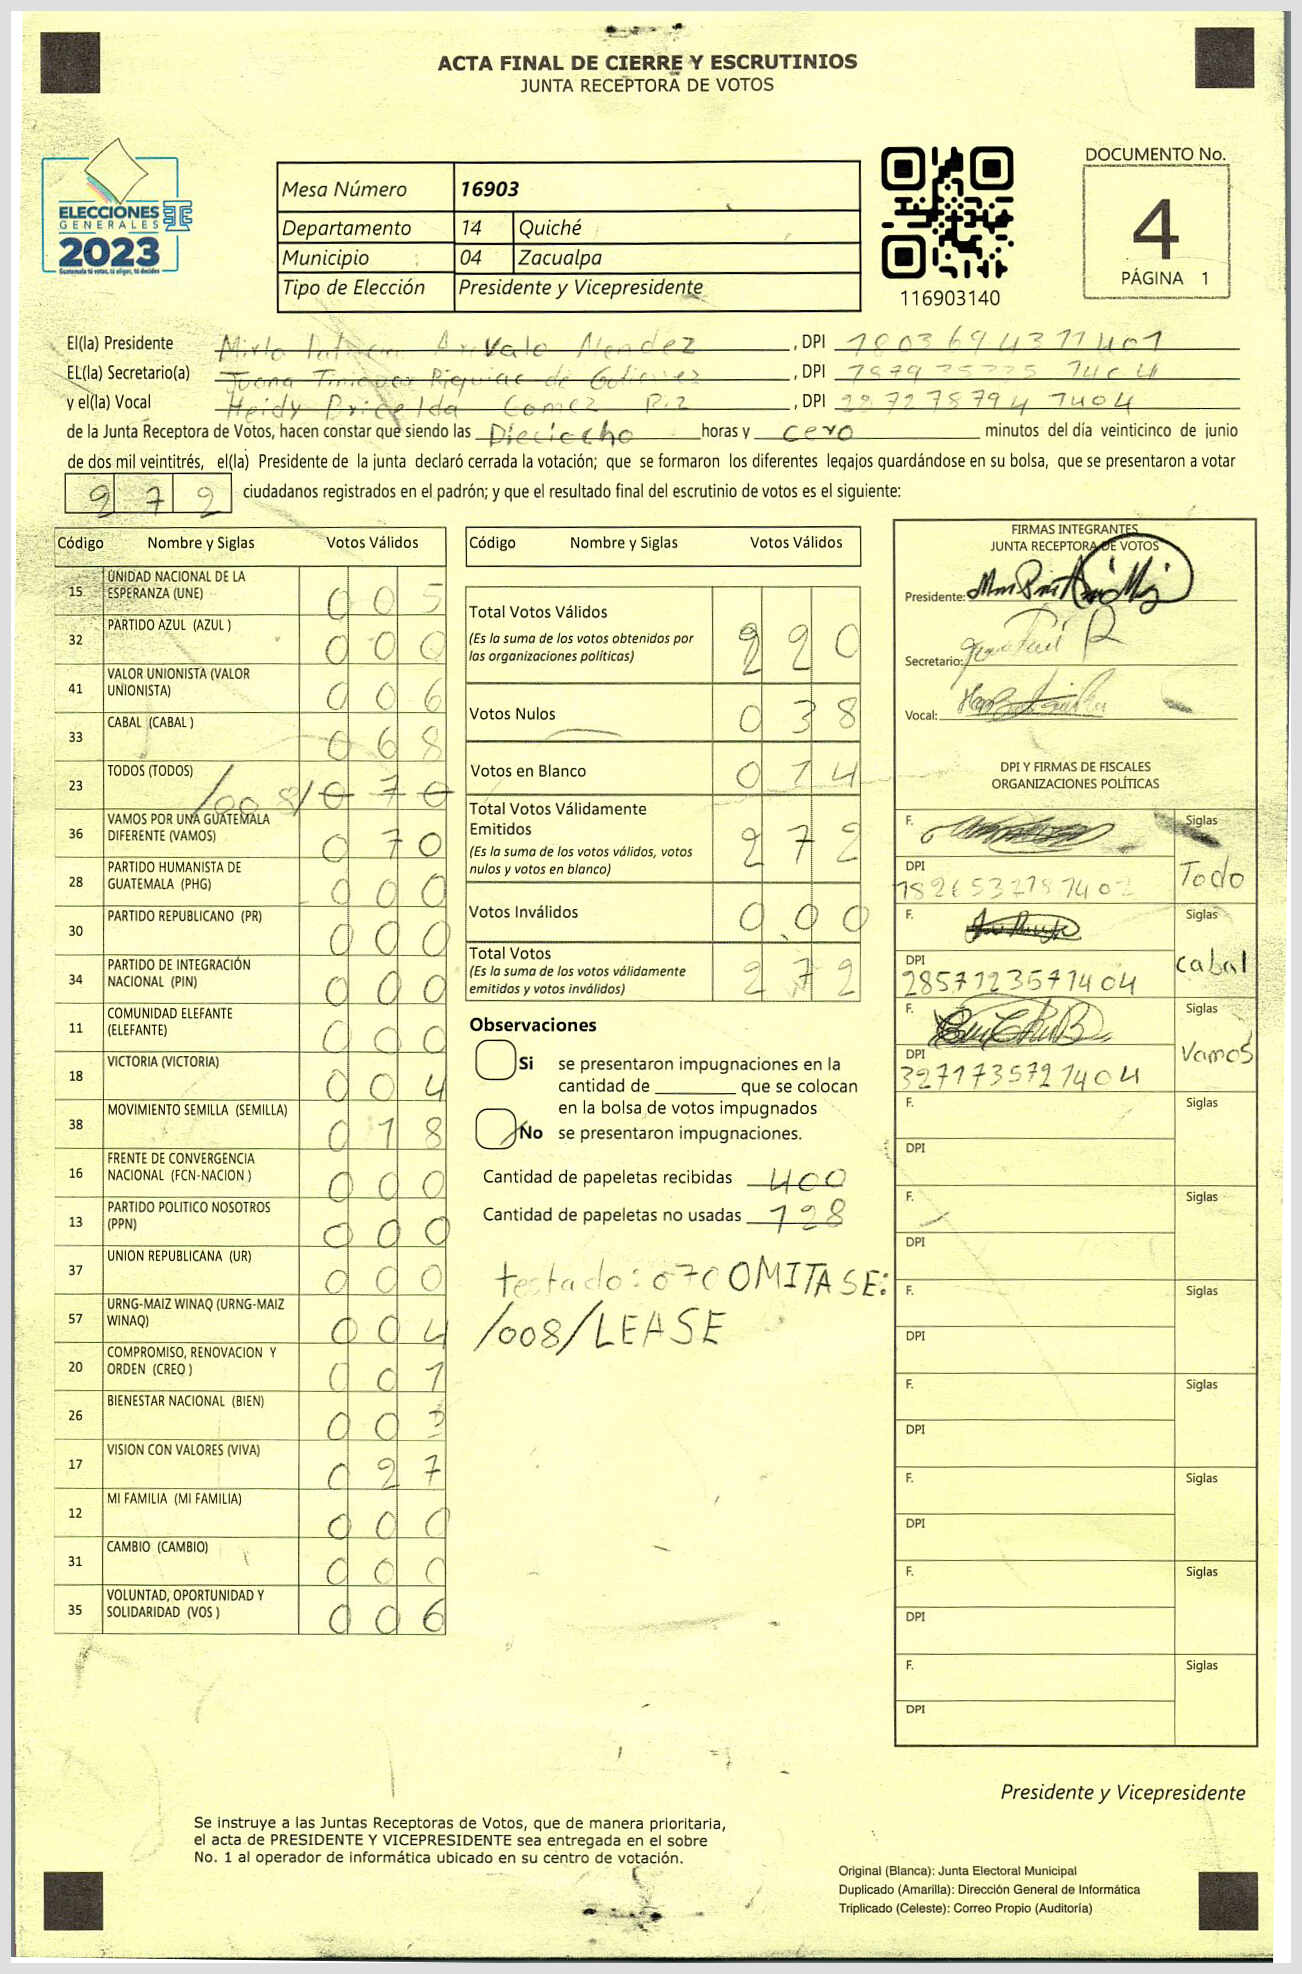 ACTA FINAL DE CIERRE Y ESCRUTINIOS
JUNTA RECEPTORA DE VOTOS
ELECCIONES
GENERALES
2023
Guatemala tú votas, tú eliges, tú decides
Mesa Número 16903
Departamento 14 Quiché
Municipio 04 Zacualpa
Tipo de Elección Presidente y Vicepresidente
116903140
DOCUMENTO No.
4
PÁGINA 1
El(la) Presidente Arevalo Mendez, DPI
EL(la) Secretario(a) Juana de Gutierrez, DPI
y el(la) Vocal Heidy Gomez, DPI
de la Junta Receptora de Votos, hacen constar que siendo las Dieciocho horas y cero minutos del día veinticinco de junio
de dos mil veintitrés, el(la) Presidente de la junta declaró cerrada la votación; que se formaron los diferentes legajos guardándose en su bolsa, que se presentaron a votar
272 ciudadanos registrados en el padrón; y que el resultado final del escrutinio de votos es el siguiente:
Código Nombre y Siglas Votos Válidos
15 UNIDAD NACIONAL DE LA ESPERANZA (UNE) 005
32 PARTIDO AZUL (AZUL ) 000
41 VALOR UNIONISTA (VALOR UNIONISTA) 006
33 CABAL (CABAL ) 068
23 TODOS (TODOS) /008/ 070
36 VAMOS POR UNA GUATEMALA DIFERENTE (VAMOS) 070
28 PARTIDO HUMANISTA DE GUATEMALA (PHG) 000
30 PARTIDO REPUBLICANO (PR) 000
34 PARTIDO DE INTEGRACIÓN NACIONAL (PIN) 000
11 COMUNIDAD ELEFANTE (ELEFANTE) 000
18 VICTORIA (VICTORIA) 004
38 MOVIMIENTO SEMILLA (SEMILLA) 018
16 FRENTE DE CONVERGENCIA NACIONAL (FCN-NACION ) 000
13 PARTIDO POLITICO NOSOTROS (PPN) 000
37 UNION REPUBLICANA (UR) 000
57 URNG-MAIZ WINAQ (URNG-MAIZ WINAQ) 004
20 COMPROMISO, RENOVACION Y ORDEN (CREO ) 001
26 BIENESTAR NACIONAL (BIEN) 003
17 VISION CON VALORES (VIVA) 027
12 MI FAMILIA (MI FAMILIA) 000
31 CAMBIO (CAMBIO) 000
35 VOLUNTAD, OPORTUNIDAD Y SOLIDARIDAD (VOS ) 006
Código Nombre y Siglas Votos Válidos
Total Votos Válidos 220
(Es la suma de los votos obtenidos por
las organizaciones políticas)
Votos Nulos 038
Votos en Blanco 014
Total Votos Válidamente
Emitidos 272
(Es la suma de los votos válidos, votos
nulos y votos en blanco)
Votos Inválidos 000
Total Votos 272
(Es la suma de los votos válidamente
emitidos y votos inválidos)
Observaciones
Si se presentaron impugnaciones en la
cantidad de ________ que se colocan
en la bolsa de votos impugnados
No se presentaron impugnaciones.
Cantidad de papeletas recibidas 400
Cantidad de papeletas no usadas 128
testado: 070 OMITASE:
/008/LEASE
FIRMAS INTEGRANTES
JUNTA RECEPTORA DE VOTOS
Presidente:
Secretario:
Vocal:
DPI Y FIRMAS DE FISCALES
ORGANIZACIONES POLÍTICAS
F. Siglas
DPI Todo
F. Siglas
DPI 2857123571404 cabal
F. Siglas
DPI 3271735721404 Vamos
F. Siglas
DPI
F. Siglas
DPI
F. Siglas
DPI
F. Siglas
DPI
F. Siglas
DPI
F. Siglas
DPI
F. Siglas
DPI
Presidente y Vicepresidente
Se instruye a las Juntas Receptoras de Votos, que de manera prioritaria,
el acta de PRESIDENTE Y VICEPRESIDENTE sea entregada en el sobre
No. 1 al operador de informática ubicado en su centro de votación.
Original (Blanca): Junta Electoral Municipal
Duplicado (Amarilla): Dirección General de Informática
Triplicado (Celeste): Correo Propio (Auditoría)